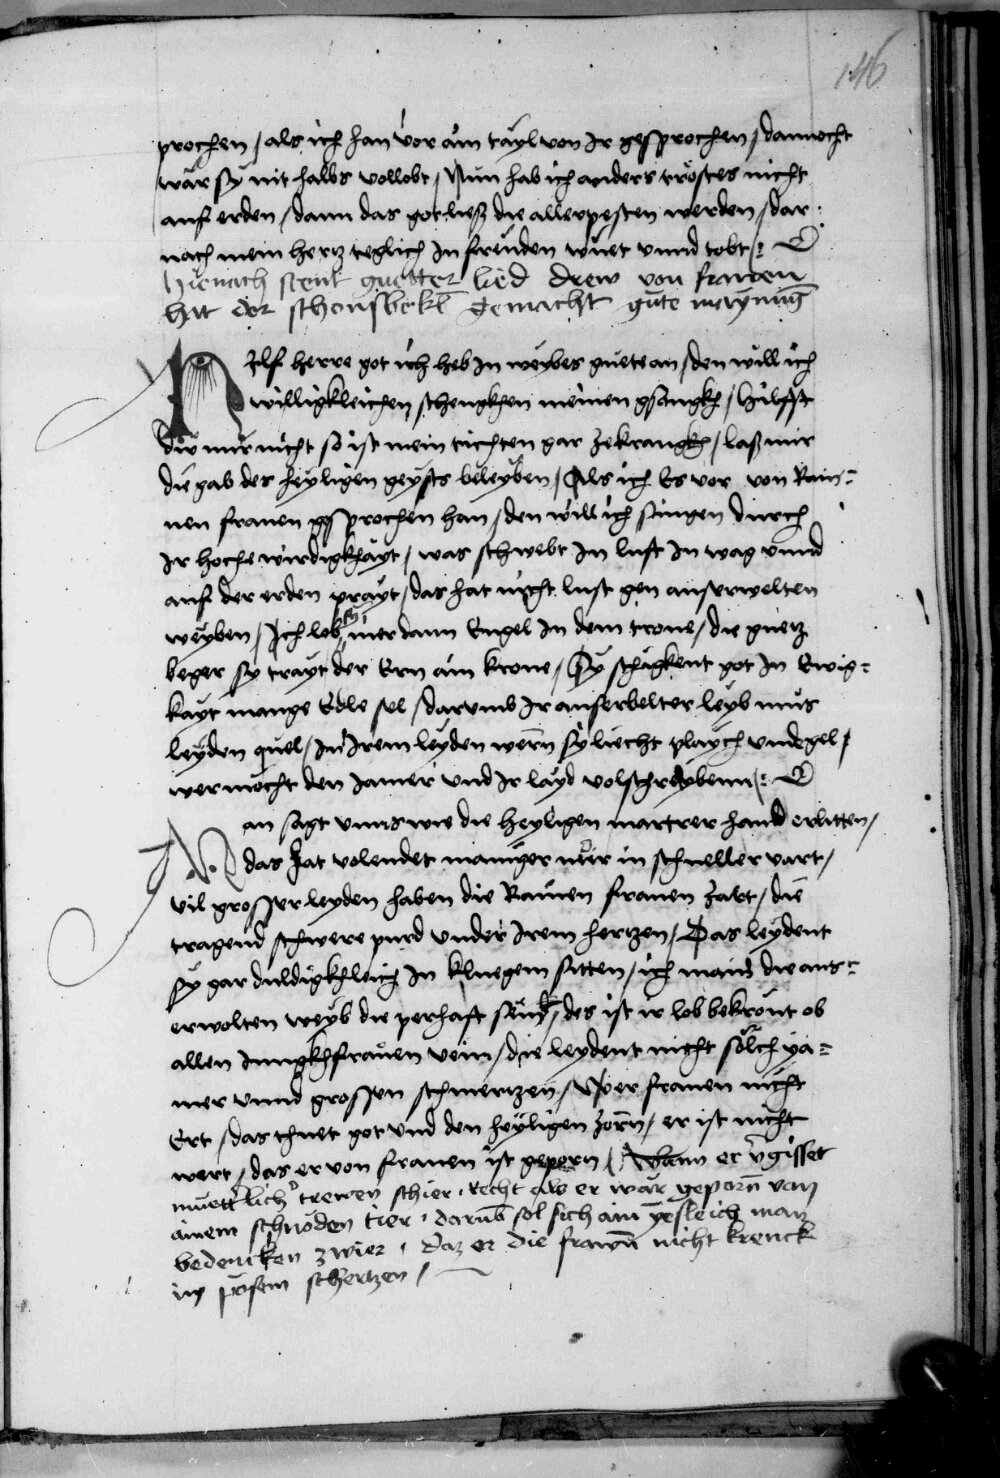 146
prochen / als ich han vor ain tayl von Ir gesprochen / dannocht
wär sy nit halbs vollobt / Nun hab ich anders trostes nicht
auf erden / dann das got ließ die allerpesten werden / dar
nach mein hertz teglich In freuden wuet vnnd tobt /:
Hienach stent guetter lied drew von frawen
hat der schonsbekl gemacht gute maynung
Hilf herre got ich heb In weybes guete an / den will ich
willigkleichen schengkhen meinen gsangkh / hilffst
du mir nicht so ist mein tichten gar zekrangkh / laß mir
die gab des heyligen geysts beleyben / Als ich Es vor von Rain=
nen frauen gsprochen han / den will ich singen durch
Ir hoche wirdigkhayt / was schwebt In luft In wag vnnd
auf der erden prayt / das hat nicht lust gen auserwelten
weyben / Ich lob sy mer dann Engel In dem trone / die guetz
beger sy trayt der Ern ain krone / Sy schigkent got In Ewig=
kayt mange Edle sel / darumb Ir auserbelter leyb mus
leyden quel / In Irem leyden wern sy liecht playch vnd gel /
wer mocht den Jamer vnd Ir layd volschreybenn /:
Man sagt vnns wie die heyligen martrer hand erlitten /
das hat volendet maniger nur in schneller vart /
vil grosser leyden haben die Rainen frauen zart / die
tragend schwere purd vnder Irem hertzen / Das leydent
sy gar duldigkhleich In kluegem sitten / ich main die aus=
erwolten weyb die perhaft sind / des ist ir lob bekront ob
allen Jungkhfrauen rein / die leydent nicht solch ya=
mer vnnd grossen schmertzen / Wer frauen nicht
Ert / das thuet got vnd den heyligen zorn / er ist nicht
wert / das er von frauen ist geporn / Wann er vgisset
muettlich trewen schier . Recht als er wär geporn van
ainem schnöden tier . darub sol sich ain yesleich man
bedencken zwier . daz er die frawn nicht krenck
in posem schertzen /